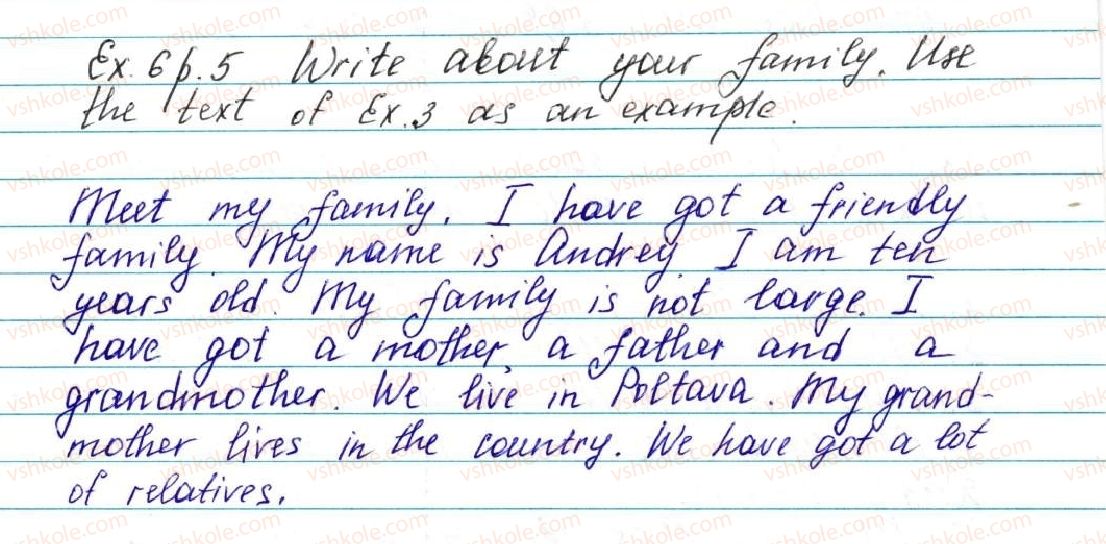 Ex. 6 p. 5 Write about your family. Use
the text of Ex. 3 as an example.
Meet my family. I have got a friendly
family. My name is Andrey. I am ten
years old. My family is not large. I
have got a mother, a father and a
grandmother. We live in Poltava. My grand-
mother lives in the country. We have got a lot
of relatives.